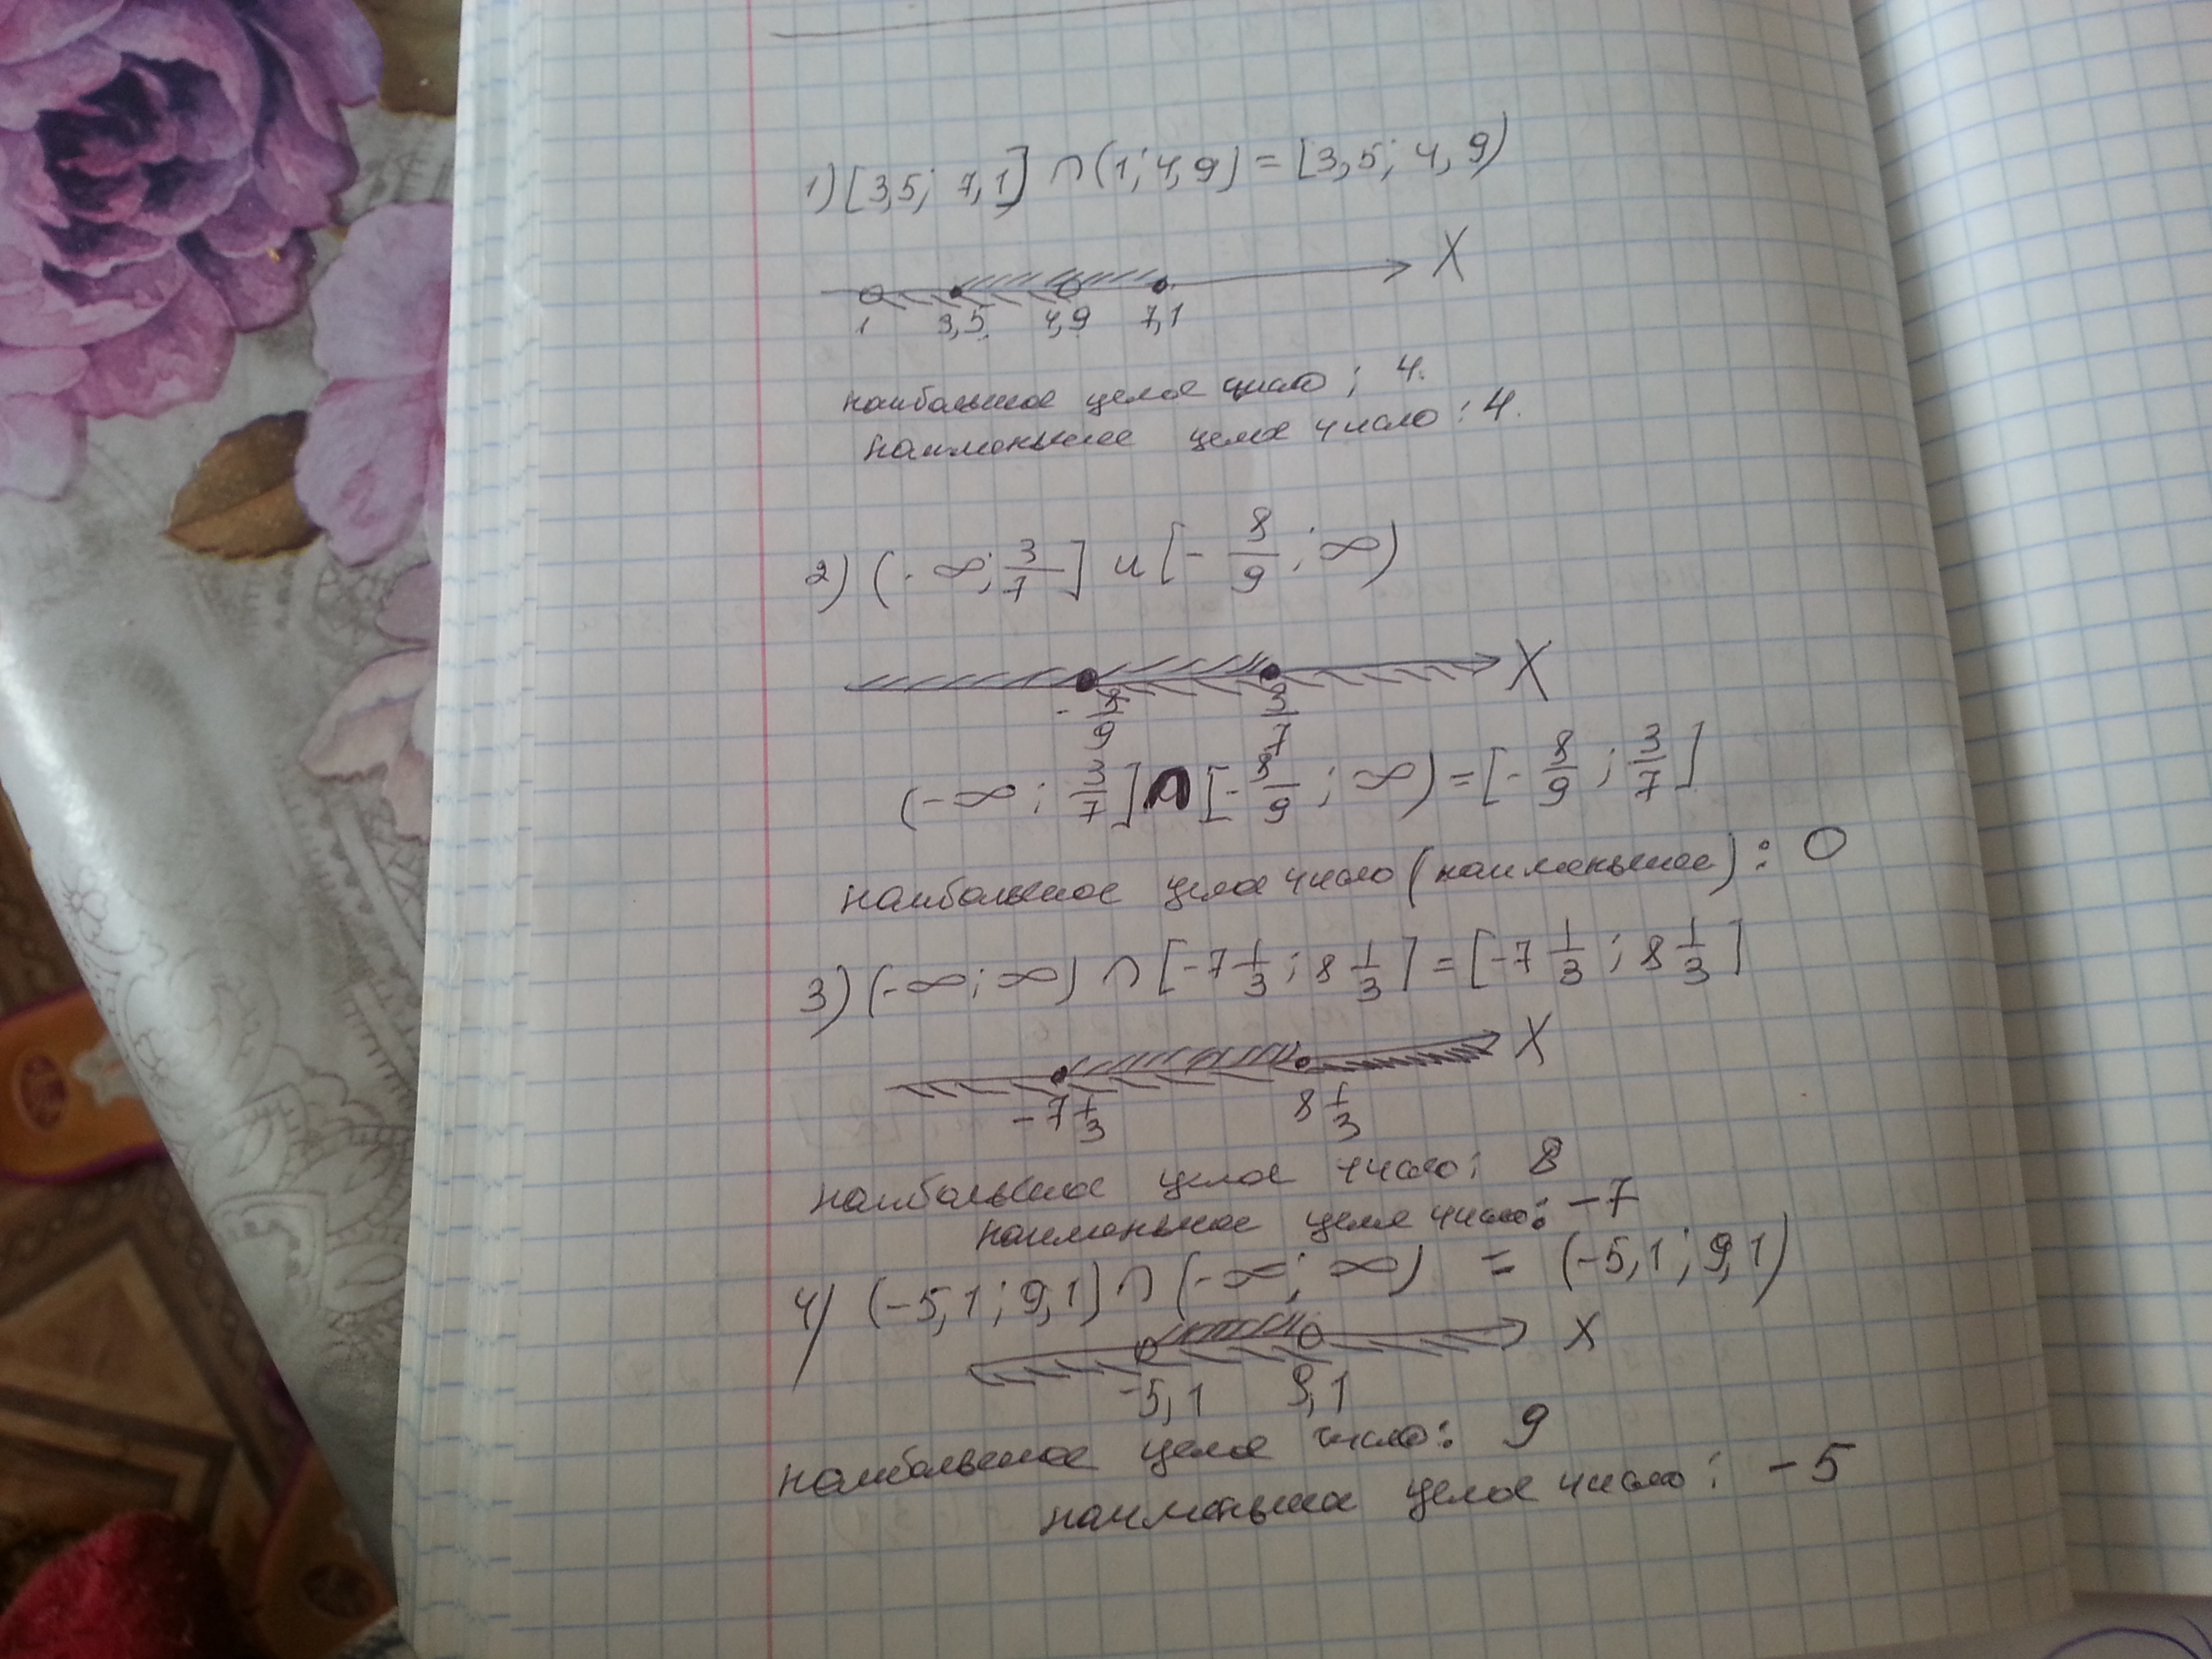 1) [3,5; 7,1] ∩ (1; 4,9) = [3,5; 4,9)
X
1 3,5 4,9 7,1
наибольшее целое число; 4.
наименьшее целое число: 4.
2) (-∞; 3/7] и [-8/9; ∞)
X
-8/9 3/7
(-∞; 3/7] ∩ [-8/9; ∞) = [-8/9; 3/7]
наибольшое целое число (наименьшее): 0
3) (-∞; ∞) ∩ [-7 1/3; 8 1/3] = [-7 1/3; 8 1/3]
X
-7 1/3 8 1/3
наибольшое целое число: 8
наименьшое целое число: -7
4) (-5,1; 9,1) ∩ (-∞; ∞) = (-5,1; 9,1)
X
-5,1 9,1
наибольшое целое число: 9
наименьшее целое число: -5